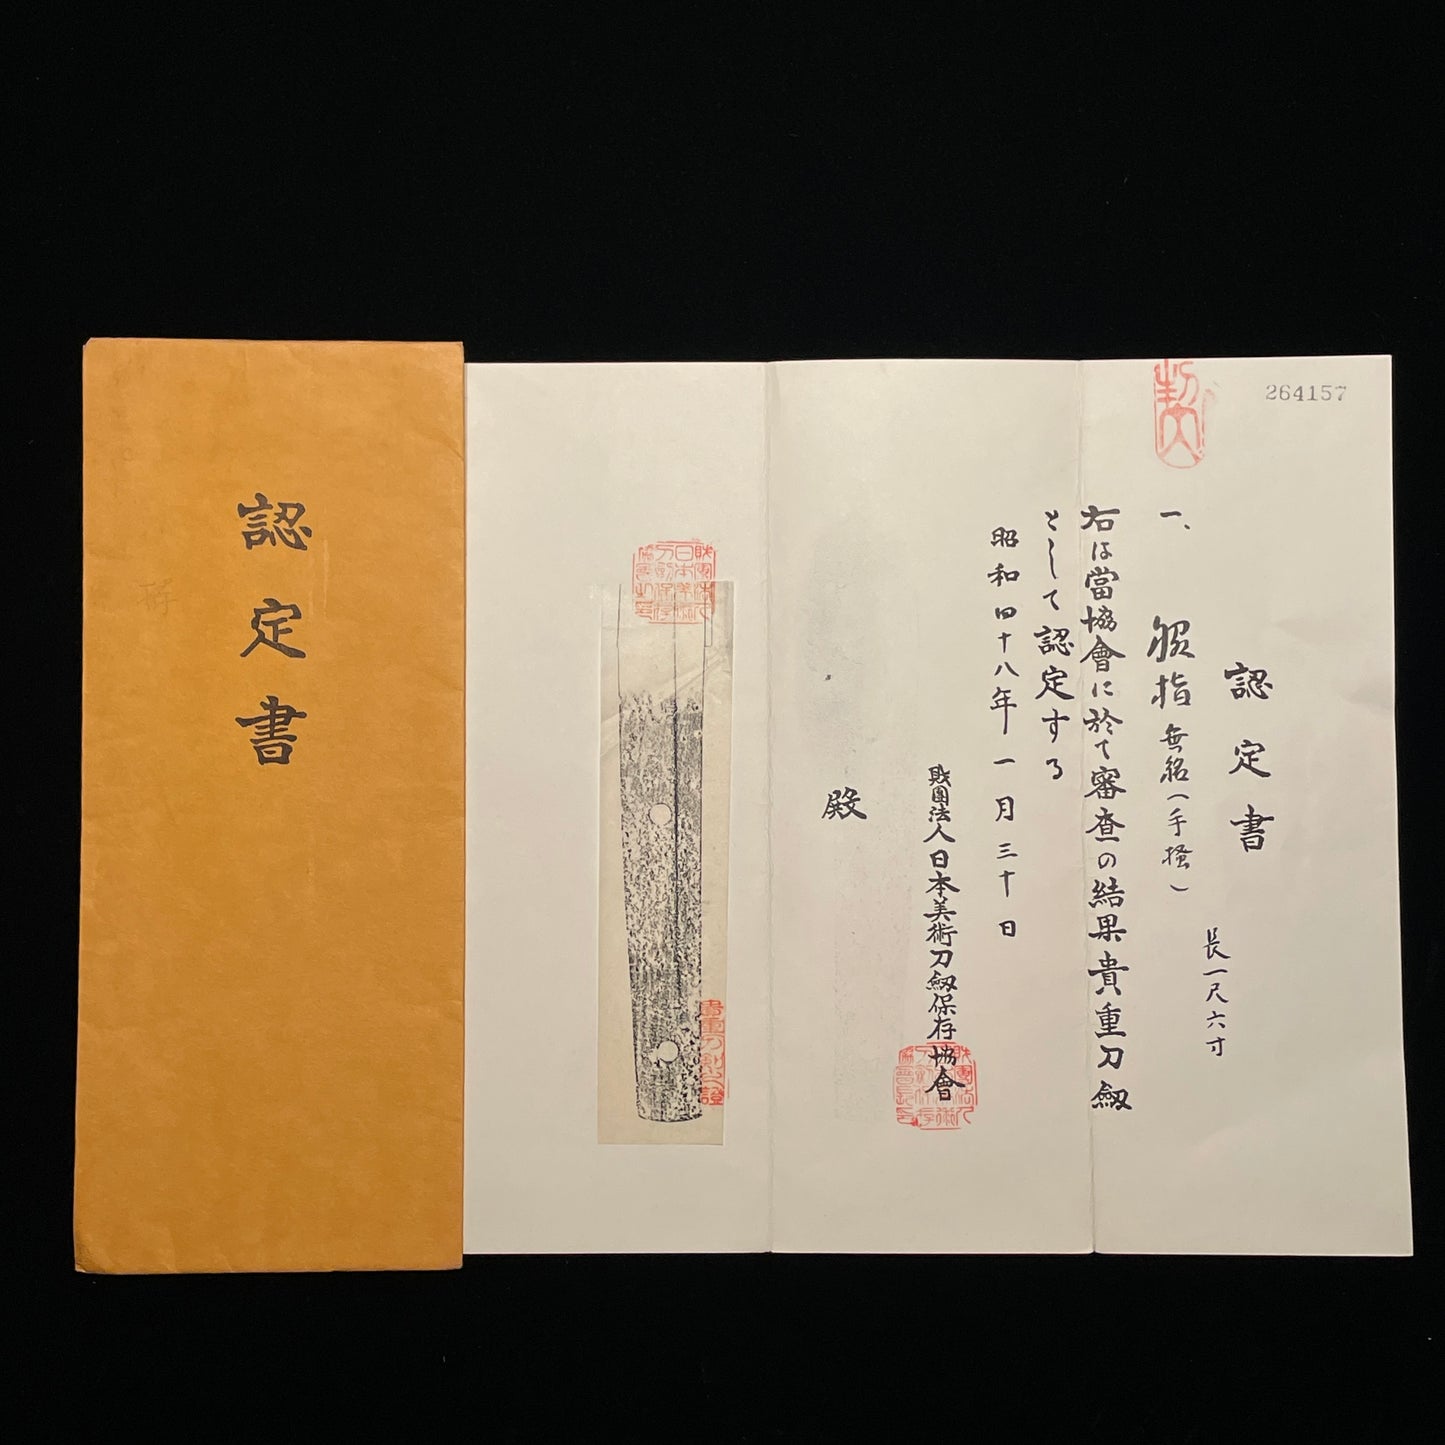 認定書
264157
認定書
一、脇指 無銘(手掻)
長一尺六寸
右は當協會に於て審査の結果貴重刀劔
として認定する
昭和四十八年一月三十日
財團法人日本美術刀劔保存協會
殿
貴重刀剣之證